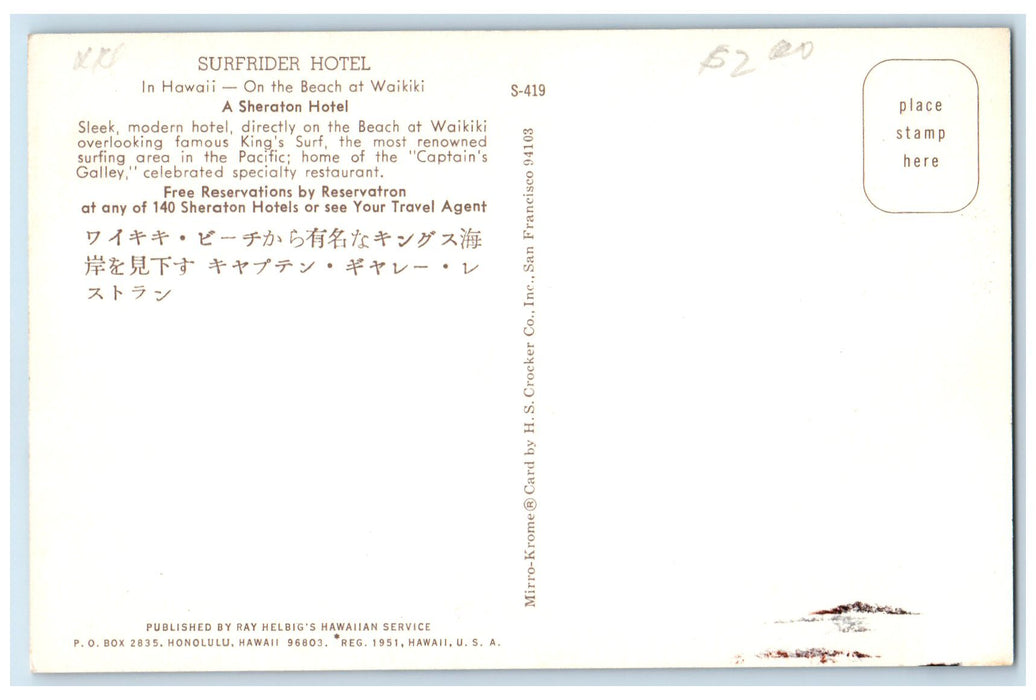 SURFRIDER HOTEL
In Hawaii — On the Beach at Waikiki
A Sheraton Hotel
Sleek, modern hotel, directly on the Beach at Waikiki
overlooking famous King's Surf, the most renowned
surfing area in the Pacific; home of the "Captain's
Galley," celebrated specialty restaurant.
Free Reservations by Reservatron
at any of 140 Sheraton Hotels or see Your Travel Agent
ワイキキ・ビーチから有名なキングス海
岸を見下す キャプテン・ギャレー・レ
ストラン
PUBLISHED BY RAY HELBIG'S HAWAIIAN SERVICE
P. O. BOX 2835, HONOLULU, HAWAII 96803. *REG. 1951, HAWAII, U. S. A.
S-419
Mirro-Krome® Card by H. S. Crocker Co., Inc., San Francisco 94103
$2.00
place
stamp
here